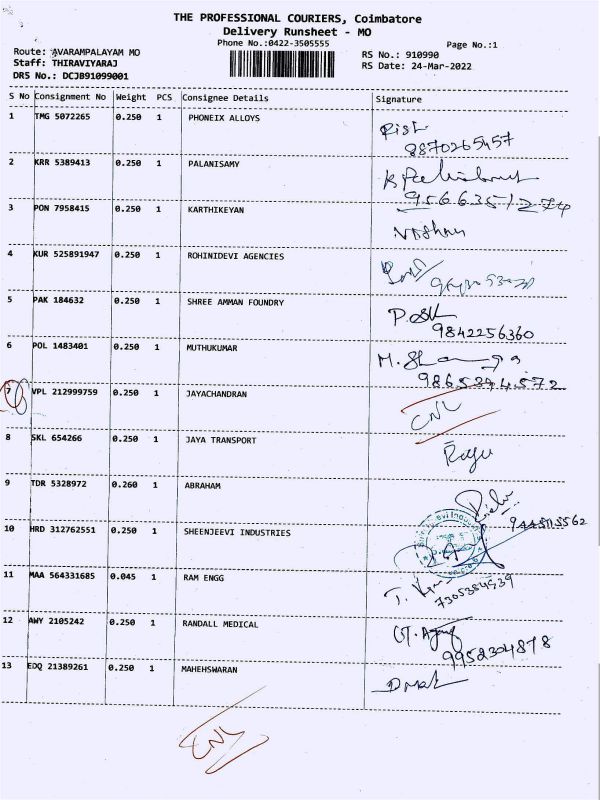 THE PROFESSIONAL COURIERS, Coimbatore
Delivery Runsheet - MO
Phone No.:0422-3505555
Page No.:1
Route: AVARAMPALAYAM MO
RS No.: 910990
Staff: THIRAVIYARAJ
RS Date: 24-Mar-2022
DRS No.: DCJB91099001
S No Consignment No Weight PCS Consignee Details Signature
1 TMG 5072265 0.250 1 PHONEIX ALLOYS
8870265457
2 KRR 5389413 0.250 1 PALANISAMY
9566351274
3 PON 7958415 0.250 1 KARTHIKEYAN
4 KUR 525891947 0.250 1 ROHINIDEVI AGENCIES
5 PAK 184632 0.250 1 SHREE AMMAN FOUNDRY
9842256360
6 POL 1483401 0.250 1 MUTHUKUMAR
7 VPL 212999759 0.250 1 JAYACHANDRAN
CNL
8 SKL 654266 0.250 1 JAYA TRANSPORT
Ragu
9 TDR 5328972 0.260 1 ABRAHAM
10 HRD 312762551 0.250 1 SHEENJEEVI INDUSTRIES
11 MAA 564331685 0.045 1 RAM ENGG
7305384939
12 AWY 2105242 0.250 1 RANDALL MEDICAL
9952304878
13 EDQ 21389261 0.250 1 MAHEHSWARAN
CNL